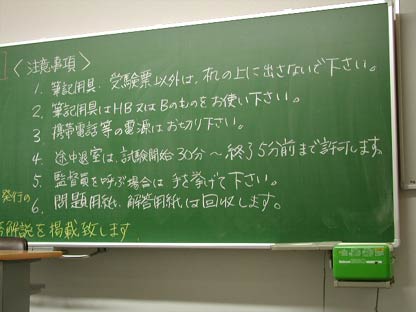 〈注意事項〉
1. 筆記用具、受験票以外は、机の上に出さないで下さい。
2. 筆記用具はHB又はBのものをお使い下さい。
3. 携帯電話等の電源はお切り下さい。
4. 途中退室は、試験開始30分〜終了5分前まで許可します。
5. 監督員を呼ぶ場合は手を挙げて下さい。
発行の
6. 問題用紙、解答用紙は回収します。
解説を掲載致します